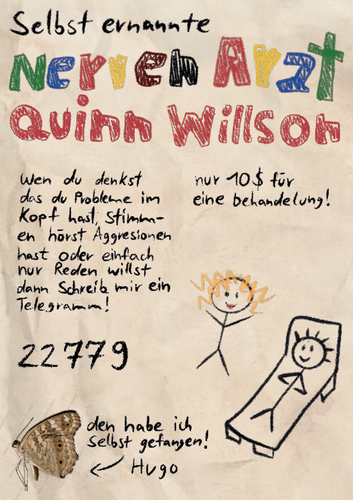 Selbst ernannte
Nerven Arzt
Quinn Willson
Wen du denkst
das du Probleme im
Kopf hast, Stimm-
en hörst Aggresionen
hast oder einfach
nur Reden willst
dann Schreib mir ein
Telegramm!
nur 10$ für
eine behandelung!
22779
den habe ich
selbst gefangen!
Hugo